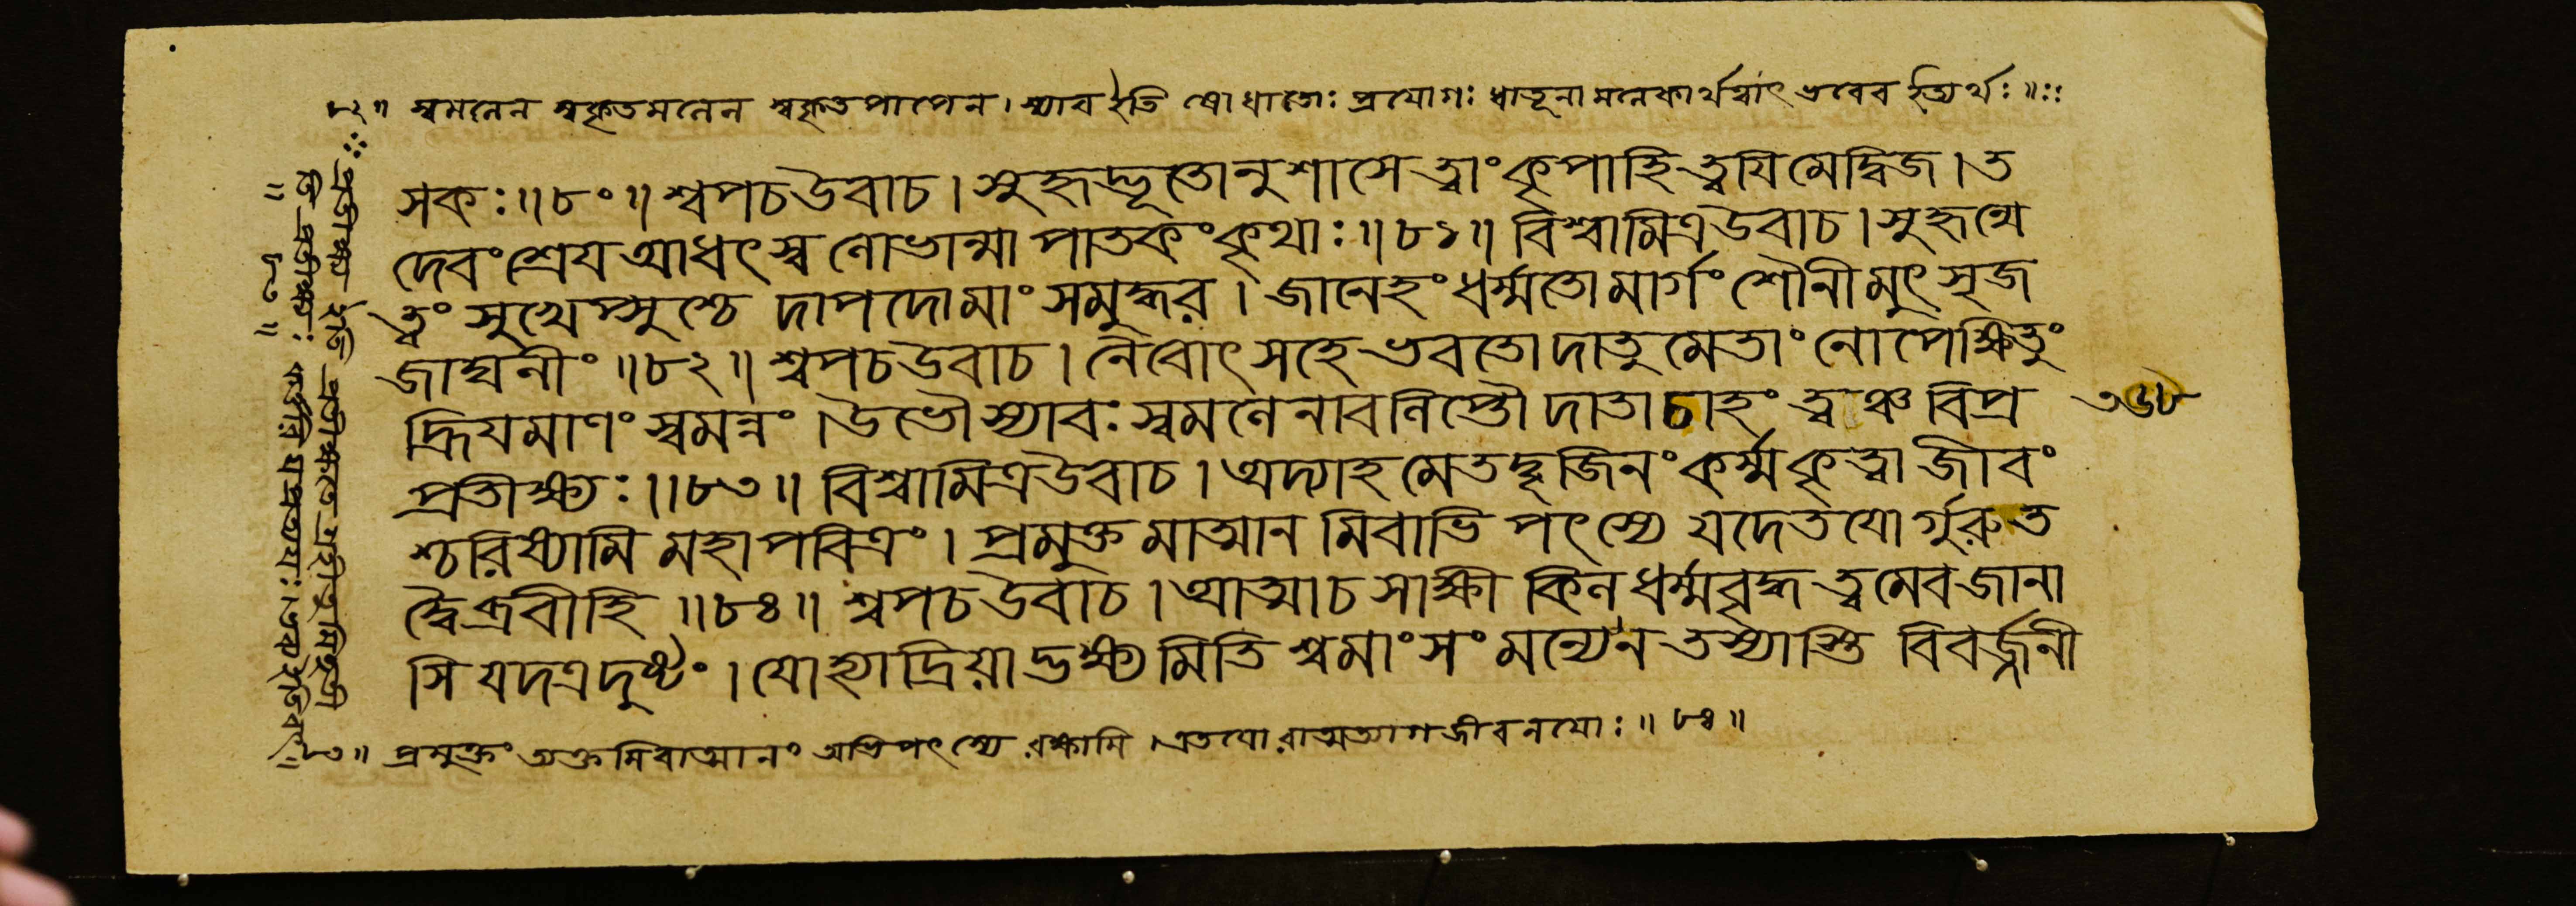 ৮২॥ স্বমনেন স্বকৃতমনেন স্বকৃতপাপেন। স্যাব ইতি ষোধাতোঃ প্রয়োগঃ ধাতূনামনেকার্থত্বাৎ ভবেব ইত্যর্থঃ॥
সকঃ॥৮০॥ শ্বপচউবাচ। সুহৃদ্ভূতোনুশাসে ত্বাং কৃপাহি ত্বযিমেদ্বিজ। ত
দেবং শ্রেয আধৎস্ব নোভান্মা পাতকং কৃথাঃ॥৮১॥ বিশ্বামিত্রউবাচ। সুহৃন্মে
ত্বং সুখেপ্সুশ্চে দাপদোমাং সমুদ্ধর। জানেহং ধর্ম্মতোমার্গং শৌনীমুৎসৃজ
জাঘনীং॥৮২॥ শ্বপচউবাচ। নৈবোৎসহে ভবতোদাতুমেতাং নোপেক্ষিতুং
দ্ধ্রিযমাণং স্বমন্নং। উভৌ স্যাবঃ স্বমনেনাবলিপ্তৌ দাতাচাহং ত্বঞ্চ বিপ্র
প্রতীক্ষ্যঃ॥৮৩॥ বিশ্বামিত্রউবাচ। অদ্যাহমেতদ্বৃজিনং কর্ম্মকৃত্বা জীবং
শ্চরিষ্যামি মহাপবিত্রং। প্রমুক্তমাত্মানমিবাভিপৎস্যে যদেতযোর্গুরুত
দ্বৈ ব্রবীহি॥৮৪॥ শ্বপচউবাচ। আত্মাচসাক্ষী কিল ধর্ম্মবৃদ্ধ ত্বমেবজানা
সি যদত্রদুষ্টং। যোহ্যাদ্রিয়াদ্ভক্ষ্যমিতি শ্বমাংসং মন্যেন তস্যাস্তি বিবর্জ্জনী
৩৬৮
প্রমুক্তং ত্যক্তমিবাত্মানং অভিপৎস্যে রক্ষামি। এতযোরাত্মত্যাগজীবনযোঃ॥৮৪॥